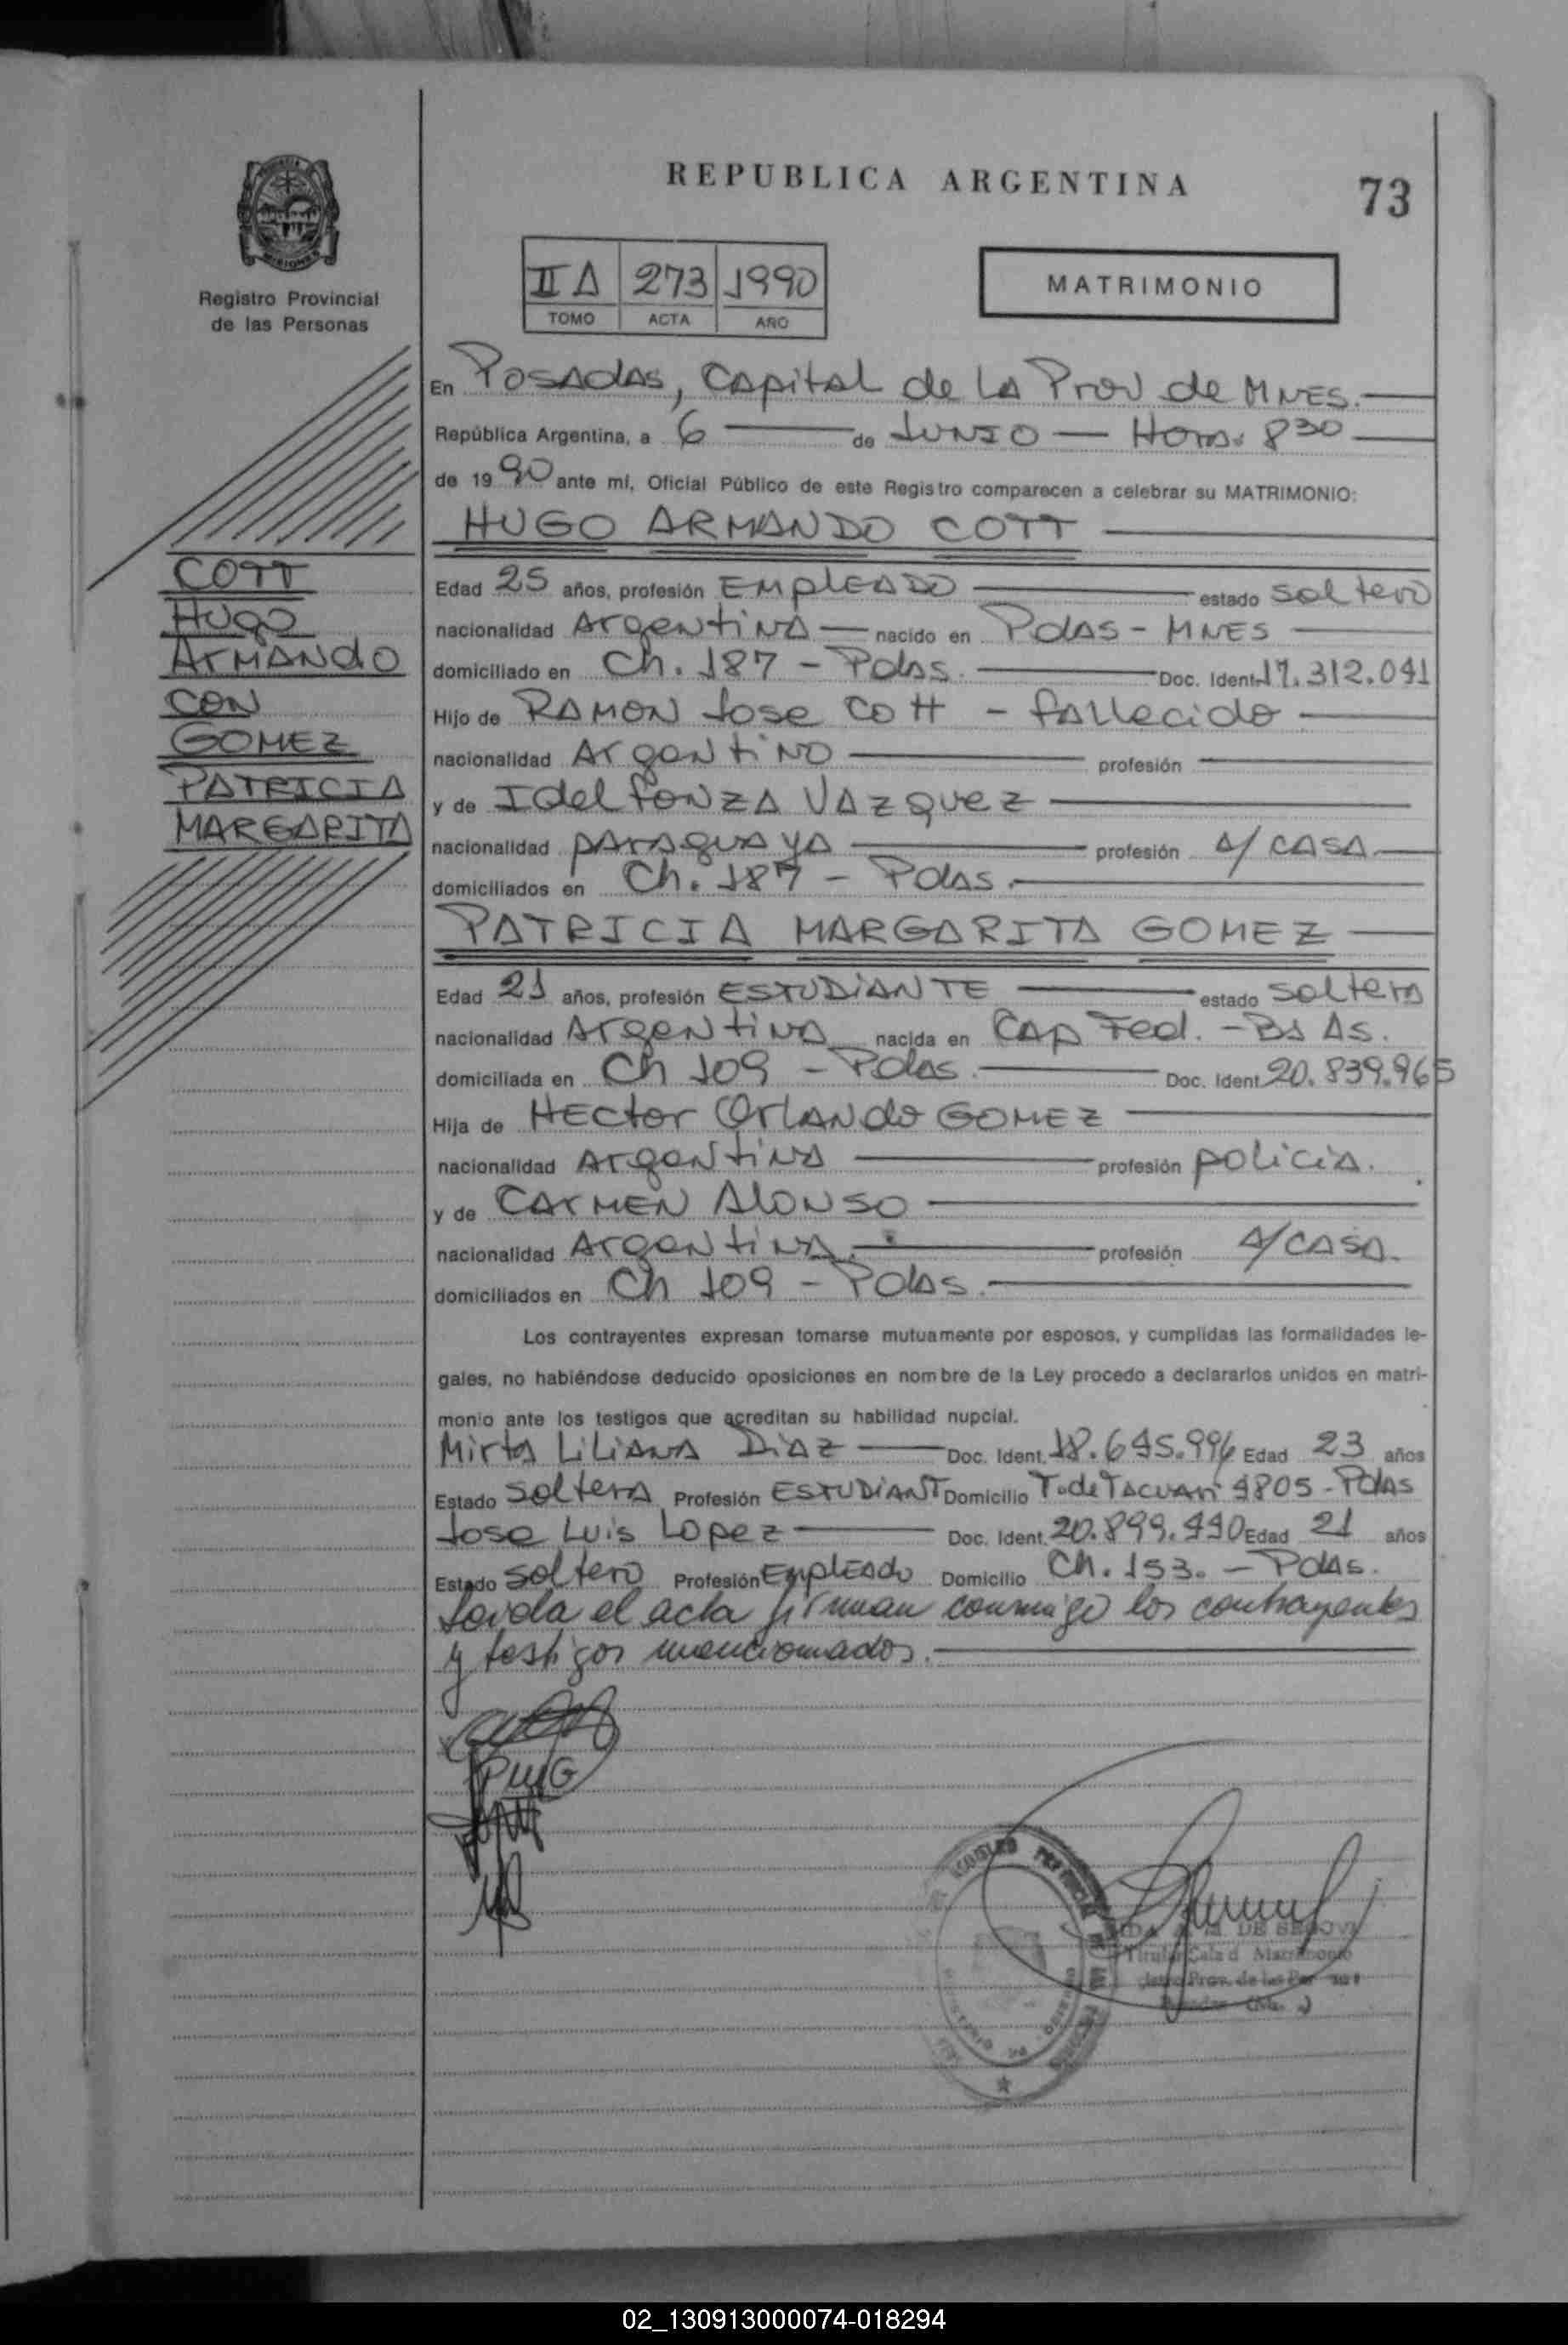 REPUBLICA ARGENTINA
73
MISIONES
Registro Provincial
de las Personas
II A 273 1990
TOMO ACTA AÑO
MATRIMONIO
En Posadas, Capital de la Prov de Mnes.
República Argentina, a 6 de Junio Hora: 830
de 1990 ante mí, Oficial Público de este Registro comparecen a celebrar su MATRIMONIO:
HUGO ARMANDO COTT
COTT
Hugo
Armando
CON
GOMEZ
PATRICIA
MARGARITA
Edad 25 años, profesión Empleado estado soltero
nacionalidad Argentina nacido en Pdas - Mnes
domiciliado en Ch. 187 - Pdas. Doc. Ident. 17.312.041
Hijo de Ramon Jose Cott - fallecido
nacionalidad Argentino profesión
y de Idelfonza Vazquez
nacionalidad paraguaya profesión A/ CASA
domiciliados en Ch. 187 - Pdas.
PATRICIA MARGARITA GOMEZ
Edad 21 años, profesión ESTUDIANTE estado soltera
nacionalidad Argentina nacida en Cap Fed. - Bs As.
domiciliada en Ch 109 - Pdas. Doc. Ident. 20.839.965
Hija de Hector Orlando GOMEZ
nacionalidad Argentina profesión policia.
y de Carmen Alonso
nacionalidad Argentina. profesión A/ CASA.
domiciliados en Ch 109 - Pdas.
Los contrayentes expresan tomarse mutuamente por esposos, y cumplidas las formalidades le-
gales, no habiéndose deducido oposiciones en nombre de la Ley procedo a declararlos unidos en matri-
monio ante los testigos que acreditan su habilidad nupcial.
Mirta Liliana Diaz Doc. Ident. 18.645.996 Edad 23 años
Estado Soltera Profesión ESTUDIANT Domicilio T. de Tacuari 4805 - Pdas
Jose Luis Lopez Doc. Ident. 20.899.440 Edad 21 años
Estado Soltero Profesión Empleado Domicilio Ch. 153. - Pdas.
Leida el acta firman conmigo los contrayentes
y testigos mencionados.
PMG
02_130913000074-018294